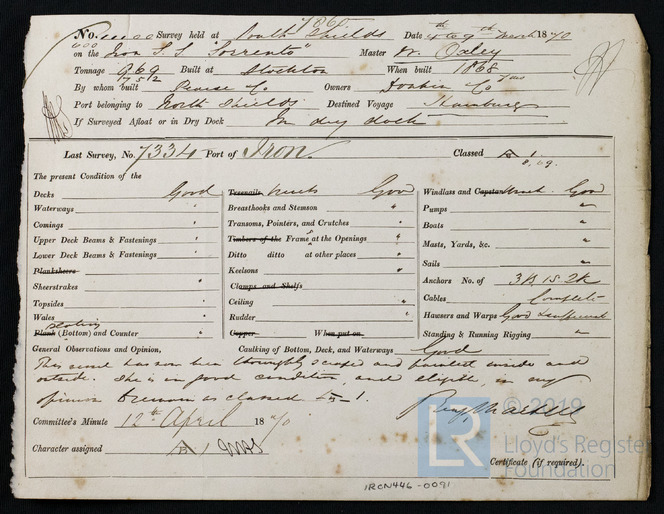 No. Survey held at South Shields Date 4th to 9th March 1870
on the Iron S.S "Sorrento" Master W. Oxley
Tonnage 969 Built at Stockton When built 1868
By whom built Pearse & Co Owners & Co
Port belonging to North Shields Destined Voyage Hamburg
If Surveyed Afloat or in Dry Dock In dry dock
Last Survey, No. 7334 Port of Iron Classed A 1
8.69.
The present Condition of the
Decks Good Treenails Rivets Good Windlass and Capstan Good
Waterways " Breasthooks and Stemson " Pumps "
Comings " Transoms, Pointers, and Crutches " Boats "
Upper Deck Beams & Fastenings " Timbers of the Frames at the Openings " Masts, Yards, &c. "
Lower Deck Beams & Fastenings " Ditto ditto at other places " Sails "
Planksheers Keelsons " Anchors No. of 3B 1S 2K
Sheerstrakes " Clamps and Shelfs Cables Complete
Topsides " Ceiling " Hausers and Warps Good & sufficient
Wales " Rudder " Standing & Running Rigging "
plating
Plank (Bottom) and Counter " Copper When put on
General Observations and Opinion, Caulking of Bottom, Deck, and Waterways Good
This vessel has now been thoroughly scraped and painted inside and
outside. She is in good condition, and eligible, in my
opinion to remain as classed A 1.
Committee's Minute 12th April 1870
Character assigned A 1
Certificate (if required).
IRON446-0091
© 2019
LR
Lloyd's Register
Foundation